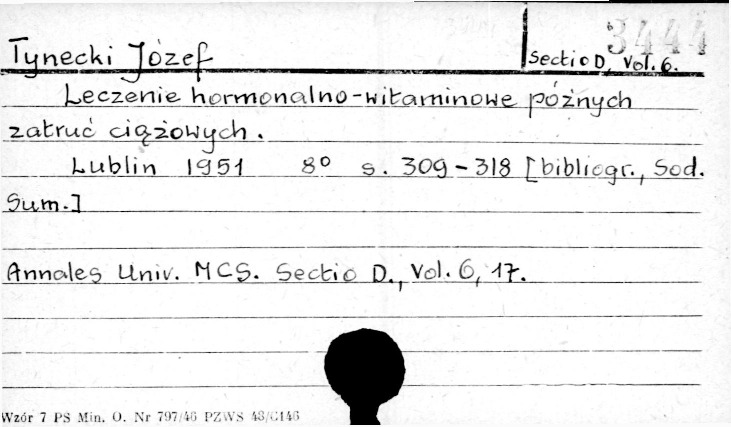 3444
Tynecki Józef
Sectio D, Vol. 6.
Leczenie hormonalno-witaminowe późnych
zatruć ciążowych.
Lublin 1951 8° s. 309-318 [bibliogr., Sod.
Sum.]
Annales Univ. MCS. Sectio D., Vol. 6, 17.
Wzór 7 PS Min. O. Nr 797/46 PZWS 48/C146